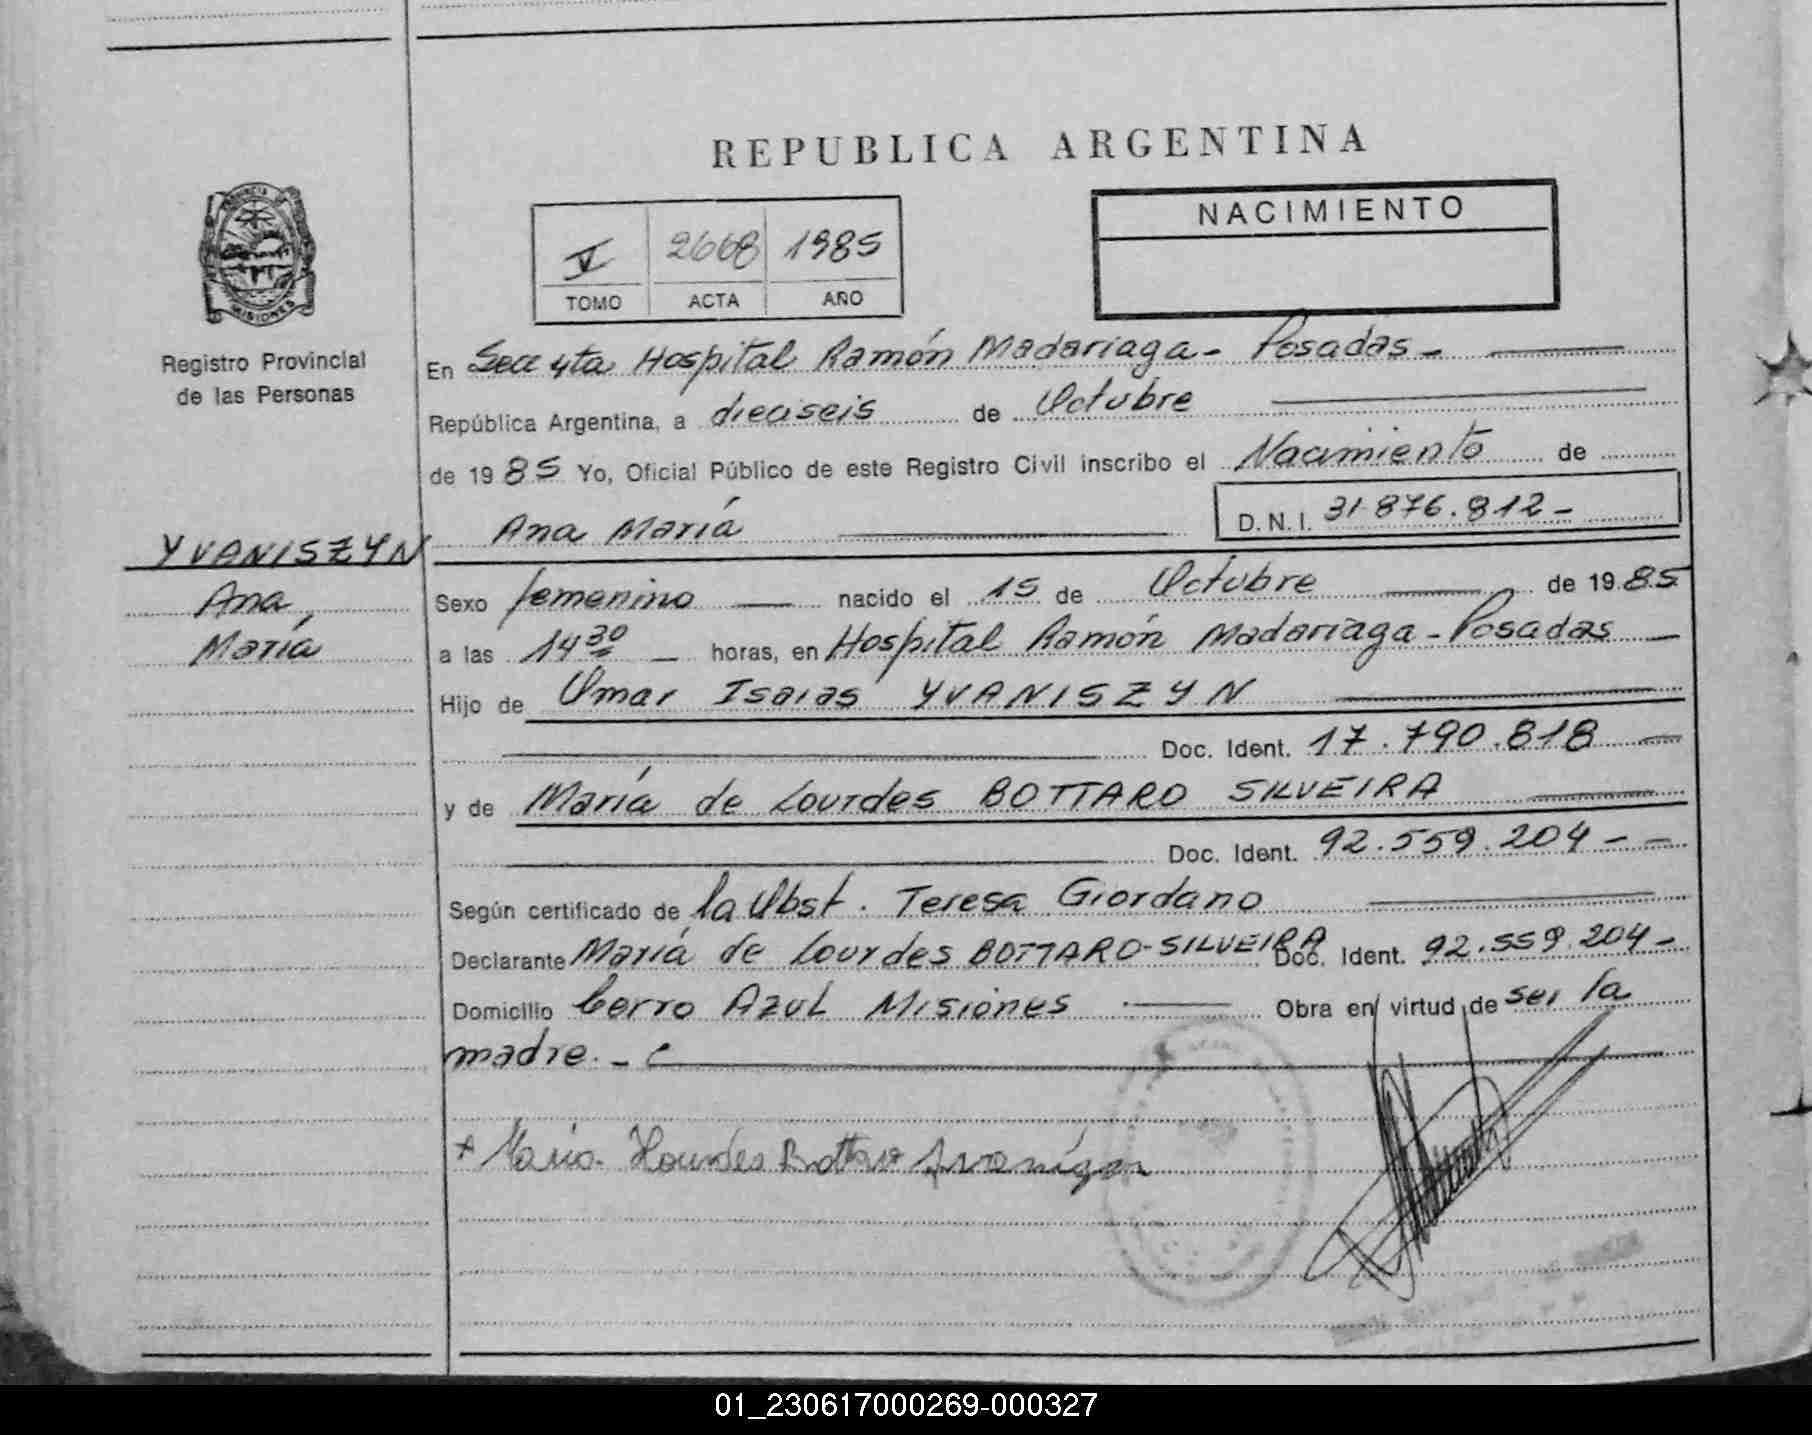 REPUBLICA ARGENTINA
NACIMIENTO
V 2668 1985
TOMO ACTA AÑO
PROVINCIA DE
MISIONES
Registro Provincial
de las Personas
En Secc 4ta Hospital Ramón Madariaga - Posadas -
República Argentina, a dieciseis de Octubre
de 1985 Yo, Oficial Público de este Registro Civil inscribo el Nacimiento de
Ana María D.N.I. 31.876.812-
YVANISZYN
Ana
María
Sexo femenino nacido el 15 de Octubre de 1985
a las 14 30 horas, en Hospital Ramón Madariaga - Posadas
Hijo de Omar Isaias YVANISZYN
Doc. Ident. 17.790.818
y de María de Lourdes BOTTARO SILVEIRA
Doc. Ident. 92.559.204 - -
Según certificado de la Obst. Teresa Giordano
Declarante María de Lourdes BOTTARO-SILVEIRA Doc. Ident. 92.559.204-
Domicilio Cerro Azul Misiones Obra en virtud de ser la
madre. -
+ Maria Lourdes Bottaro
01_230617000269-000327